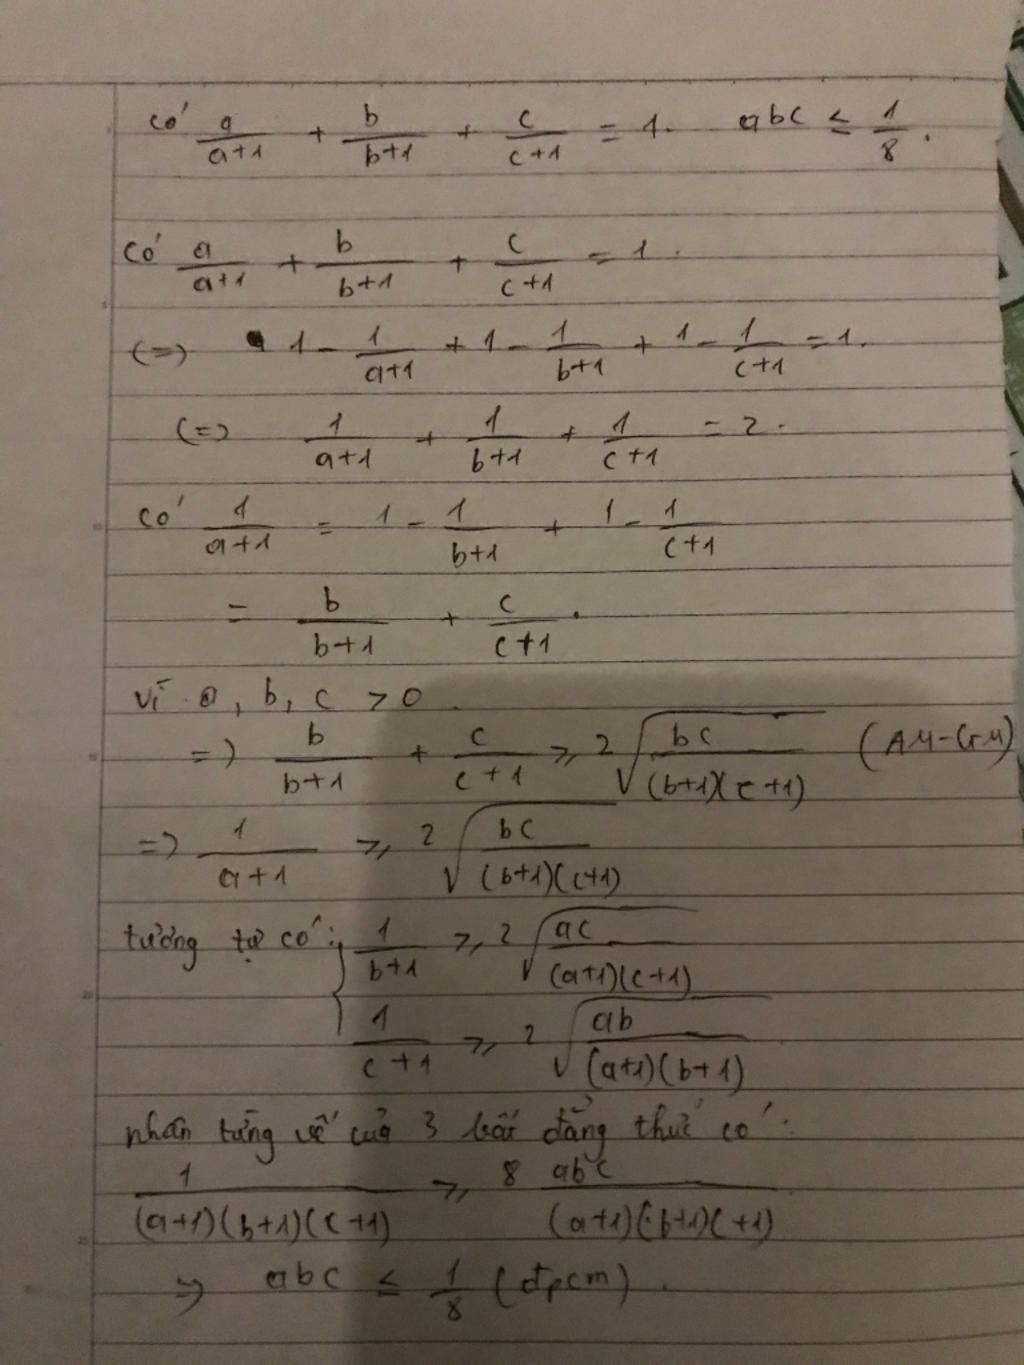 có a/(a+1) + b/(b+1) + c/(c+1) = 1. abc ≤ 1/8.
Có a/(a+1) + b/(b+1) + c/(c+1) = 1.
(=) 1 - 1/(a+1) + 1 - 1/(b+1) + 1 - 1/(c+1) = 1.
(=) 1/(a+1) + 1/(b+1) + 1/(c+1) = 2.
Có 1/(a+1) = 1 - 1/(b+1) + 1 - 1/(c+1)
= b/(b+1) + c/(c+1).
Vì a, b, c > 0.
=) b/(b+1) + c/(c+1) ≥ 2√(bc/((b+1)(c+1))) (AM-GM)
=) 1/(a+1) ≥ 2√(bc/((b+1)(c+1)))
tương tự có: { 1/(b+1) ≥ 2√(ac/((a+1)(c+1)))
1/(c+1) ≥ 2√(ab/((a+1)(b+1)))
nhân từng vế của 3 bất đẳng thức có:
1/((a+1)(b+1)(c+1)) ≥ 8 abc/((a+1)(b+1)(+1))
=) abc ≤ 1/8 (đpcm).